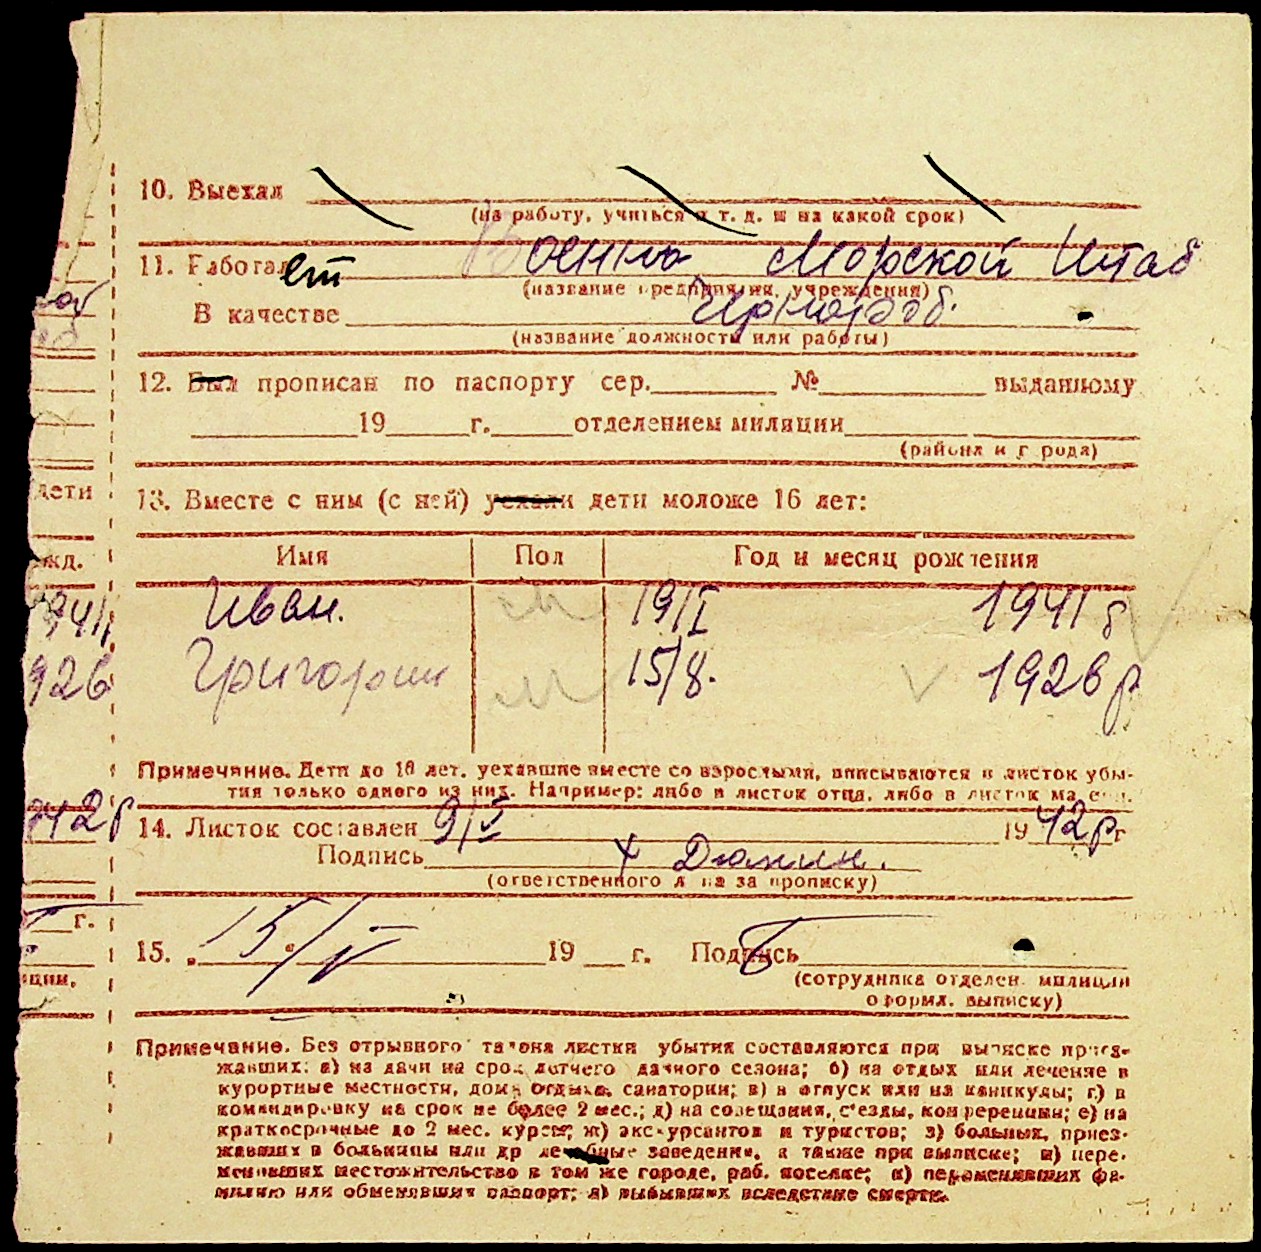 10. Выехал
(на работу, учиться и т. д. и на какой срок)
11. Работает Военно Морской Штаб
(название предприятия, учреждения)
В качестве
(название должности или работы)
12. Был прописан по паспорту сер. № выданному
19 г. отделением милиции
(района и города)
13. Вместе с ним (с ней) уехали дети моложе 16 лет:
дети
Имя Пол Год и месяц рождения
жд.
Иван. м 19/I 1941 г
941
Григории м 15/8. 1926 г
926
Примечание. Дети до 16 лет, уехавшие вместе со взрослыми, вписываются в листок убы-
тия только одного из них. Например: либо в листок отца, либо в листок матери.
14. Листок составлен 9/V 1942 г г
942 г
Подпись
(ответственного лица за прописку)
г.
15. 15/V 19 г. Подпись
(сотрудника отделен. милиции
ции.
оформл. выписку)
Примечание. Без отрывного талона листки убытия составляются при выписке приез-
жавших: а) на дачи на срок летнего дачного сезона; б) на отдых или лечение в
курортные местности, дома отдыха, санатории; в) в отпуск или на каникулы; г.) в
командировку на срок не более 2 мес.; д) на совещания, с'езды, конференции; е) на
краткосрочные до 2 мес. курсы; ж) экскурсантов и туристов; з) больных, приез-
жавших в больницы или др лечебные заведения, а также при выписке; и) пере-
менивших местожительство в том же городе, раб. поселке; к) переменивших фа-
милию или обменявших паспорт; л) выбывших вследствие смерти.